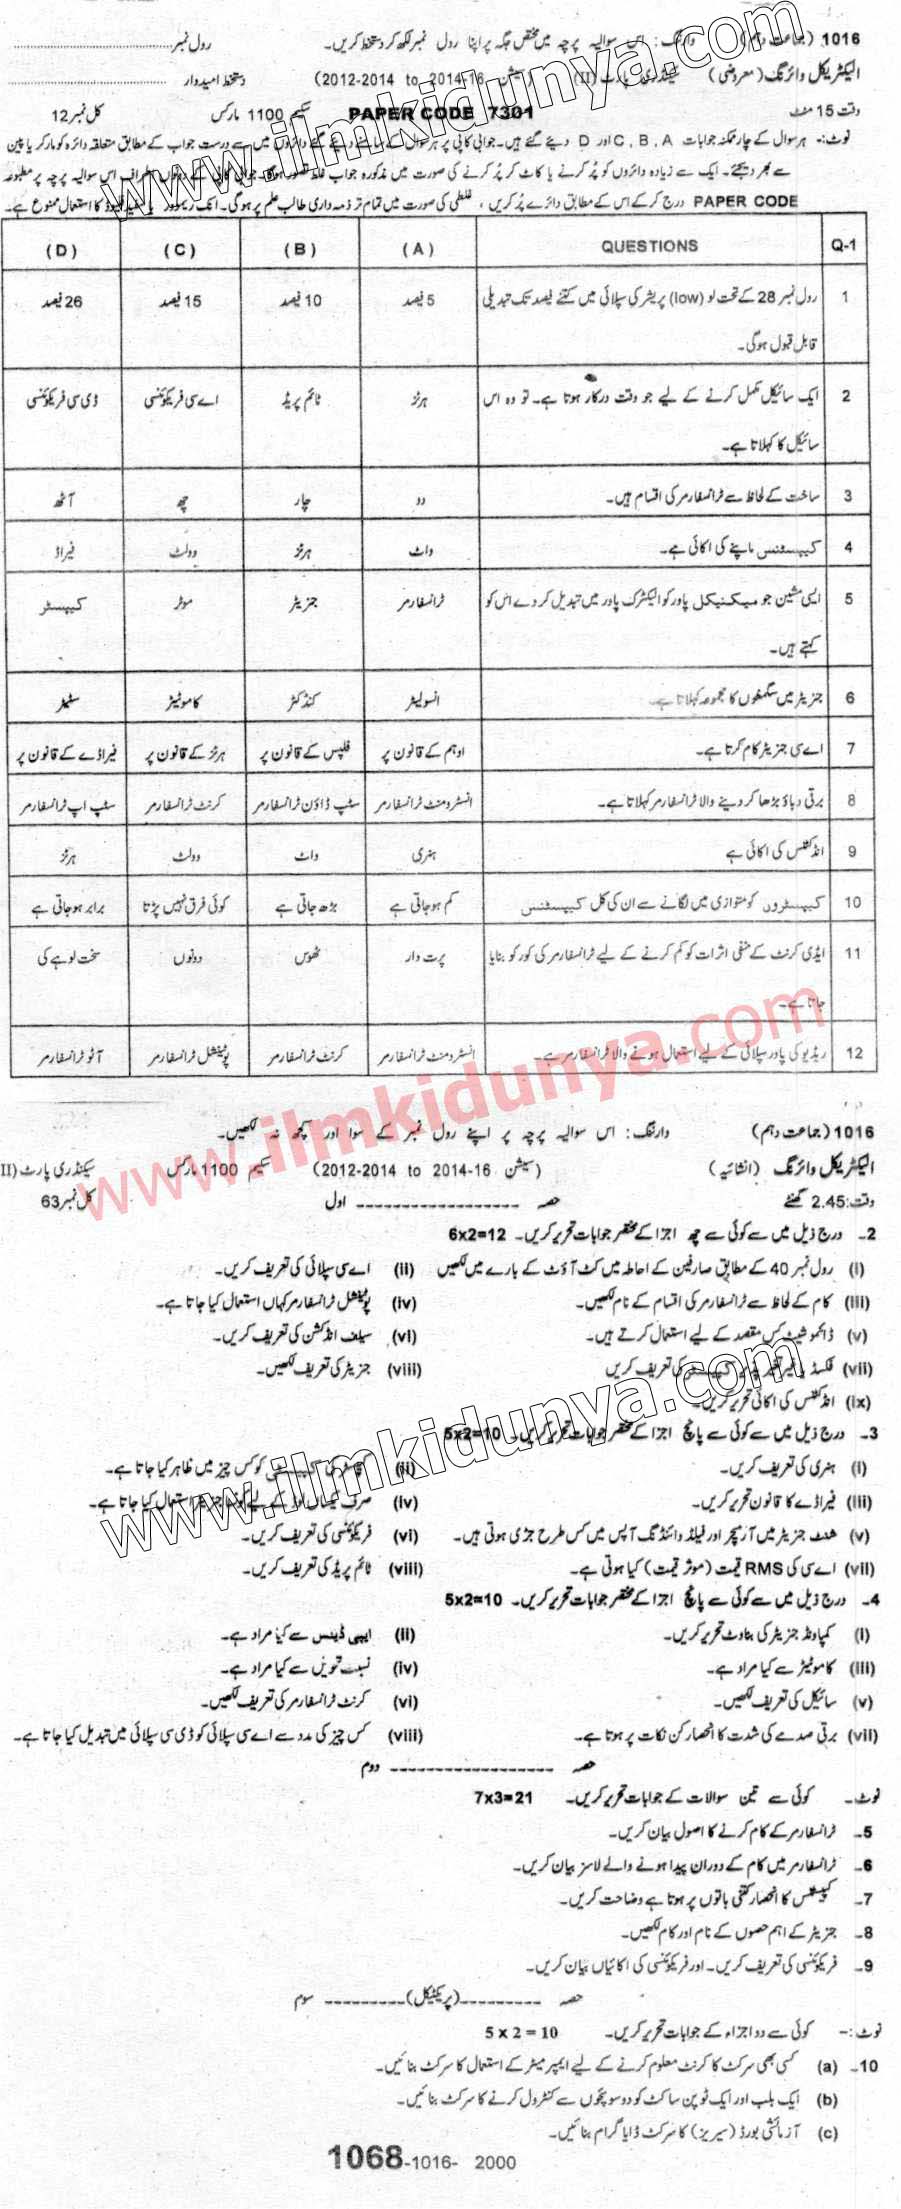 1016 (جماعت دہم) وارننگ: اس سوالیہ پرچہ میں مختص جگہ پر اپنا رول نمبر لکھ کر دستخط کریں۔ رول نمبر
الیکٹریکل وائرنگ (معروضی) سیکنڈری پارٹ (II) (سیشن 2012-2014 to 2014-16) دستخط امیدوار
وقت 15 منٹ PAPER CODE 7301 سکیم 1100 مارکس کل نمبر 12
نوٹ:- ہر سوال کے چار ممکنہ جوابات A, B, C اور D دیئے گئے ہیں۔ جوابی کاپی پر ہر سوال کے سامنے دیئے گئے دائروں میں سے درست جواب کے مطابق متعلقہ دائرہ کو مارکر یا پین
سے بھر دیجئے۔ ایک سے زیادہ دائروں کو پُر کرنے یا کاٹ کر پُر کرنے کی صورت میں مذکورہ جواب غلط تصور ہوگا۔ جوابی کاپی کے دونوں اطراف اس سوالیہ پرچہ پر مطبوعہ
PAPER CODE درج کر کے اس کے مطابق دائرے پُر کریں، غلطی کی صورت میں تمام تر ذمہ داری طالب علم پر ہوگی۔ انک ریموور یا سفید فلیوڈ کا استعمال ممنوع ہے۔
Q-1 QUESTIONS (A) (B) (C) (D)
1 رول نمبر 28 کے تحت لو (low) پریشر کی سپلائی میں کتنے فیصد تک تبدیلی 5 فیصد 10 فیصد 15 فیصد 26 فیصد
قابل قبول ہوگی۔
2 ایک سائیکل مکمل کرنے کے لیے جو وقت درکار ہوتا ہے۔ تو وہ اس ہرٹز ٹائم پریڈ اے سی فریکوئنسی ڈی سی فریکوئنسی
سائیکل کا کہلاتا ہے۔
3 ساخت کے لحاظ سے ٹرانسفارمر کی اقسام ہیں۔ دو چار چھ آٹھ
4 کیپسٹنس ماپنے کی اکائی ہے۔ واٹ ہرٹز وولٹ فیراڈ
5 ایسی مشین جو میکنیکل پاور کو الیکٹرک پاور میں تبدیل کر دے اس کو ٹرانسفارمر جنریٹر موٹر کیپسٹر
کہتے ہیں۔
6 جنریٹر میں سگمنٹوں کا مجموعہ کہلاتا ہے۔ انسولیٹر کنڈکٹر کاموٹیٹر سٹیٹر
7 اے سی جنریٹر کام کرتا ہے۔ اوہم کے قانون پر فلپس کے قانون پر ہرٹز کے قانون پر فیراڈے کے قانون پر
8 برقی دباؤ بڑھا کر دینے والا ٹرانسفارمر کہلاتا ہے۔ انسٹرومنٹ ٹرانسفارمر سٹیپ ڈاؤن ٹرانسفارمر کرنٹ ٹرانسفارمر سٹپ اپ ٹرانسفارمر
9 انڈکٹنس کی اکائی ہے ہنری واٹ وولٹ ہرٹز
10 کیپسٹروں کو متوازی میں لگانے سے ان کی کل کیپسٹنس کم ہو جاتی ہے بڑھ جاتی ہے کوئی فرق نہیں پڑتا برابر ہو جاتی ہے
11 ایڈی کرنٹ کے منفی اثرات کو کم کرنے کے لیے ٹرانسفارمر کی کور کو بنایا پرت دار ٹھوس دونوں سخت لوہے کی
جاتا ہے۔
12 ریڈیو کی پاور سپلائی کے لیے استعمال ہونے والا ٹرانسفارمر ہے۔ انسٹرومنٹ ٹرانسفارمر کرنٹ ٹرانسفارمر پوٹینشل ٹرانسفارمر آٹو ٹرانسفارمر
1016 (جماعت دہم) وارننگ: اس سوالیہ پرچہ پر اپنے رول نمبر کے سوا اور کچھ نہ لکھیں۔
الیکٹریکل وائرنگ (انشائیہ) (سیشن 2012-2014 to 2014-16) سکیم 1100 مارکس سیکنڈری پارٹ (II
وقت: 2.45 گھنٹے حصہ ------------------ اول کل نمبر 63
2۔ درج ذیل میں سے کوئی سے چھ اجزا کے مختصر جوابات تحریر کریں۔ 6x2=12
(i) رول نمبر 40 کے مطابق صارفین کے احاطہ میں کٹ آؤٹ کے بارے میں لکھیں (ii) اے سی سپلائی کی تعریف کریں۔
(iii) کام کے لحاظ سے ٹرانسفارمر کی اقسام کے نام لکھیں۔ (iv) پوٹینشل ٹرانسفارمر کہاں استعمال کیا جاتا ہے۔
(v) ڈائموشیٹ کس مقصد کے لیے استعمال کرتے ہیں۔ (vi) سیلف انڈکشن کی تعریف کریں۔
(vii) فکسڈ یا غیر تغیر پذیر کیپسٹر کی تعریف کریں (viii) جنریٹر کی تعریف لکھیں۔
(ix) انڈکٹنس کی اکائی تحریر کریں۔
3۔ درج ذیل میں سے کوئی سے پانچ اجزا کے مختصر جوابات تحریر کریں۔ 5x2=10
(i) ہنری کی تعریف کریں۔ (ii) کی کو کس چیز میں ظاہر کیا جاتا ہے۔
(iii) فیراڈے کا قانون تحریر کریں۔ (iv) صرف یکساں لوڈ کے لیے کونسا جنریٹر استعمال کیا جاتا ہے۔
(v) شنٹ جنریٹر میں آرمیچر اور فیلڈ وائنڈنگ آپس میں کس طرح جڑی ہوتی ہیں۔ (vi) فریکوئنسی کی تعریف کریں۔
(vii) اے سی کی RMS قیمت (موثر قیمت) کیا ہوتی ہے۔ (viii) ٹائم پریڈ کی تعریف کریں۔
4۔ درج ذیل میں سے کوئی سے پانچ اجزا کے مختصر جوابات تحریر کریں۔ 5x2=10
(i) کمپاونڈ جنریٹر کی بناوٹ تحریر کریں۔ (ii) ایمپی ڈینس سے کیا مراد ہے۔
(iii) کاموٹیٹر سے کیا مراد ہے۔ (iv) نسبت تحویل سے کیا مراد ہے۔
(v) سائیکل کی تعریف لکھیں۔ (vi) کرنٹ ٹرانسفارمر کی تعریف لکھیں۔
(vii) برقی صدمے کی شدت کا انحصار کن نکات پر ہوتا ہے۔ (viii) کس چیز کی مدد سے اے سی سپلائی کو ڈی سی سپلائی میں تبدیل کیا جاتا ہے۔
حصہ ------------------ دوم
نوٹ۔ کوئی سے تین سوالات کے جوابات تحریر کریں۔ 7x3=21
5۔ ٹرانسفارمر کے کام کرنے کا اصول بیان کریں۔
6۔ ٹرانسفارمر میں کام کے دوران پیدا ہونے والے لاسز بیان کریں۔
7۔ کیپسٹنس کا انحصار کتنی باتوں پر ہوتا ہے وضاحت کریں۔
8۔ جنریٹر کے اہم حصوں کے نام اور کام لکھیں۔
9۔ فریکوئنسی کی تعریف کریں۔ اور فریکوئنسی کی اکائیاں بیان کریں۔
حصہ ---------(پریکٹیکل)--------- سوم
نوٹ:- کوئی سے دو اجزاء کے جوابات تحریر کریں۔ 5 x 2 = 10
10۔ (a) کسی بھی سرکٹ کا کرنٹ معلوم کرنے کے لیے ایمپیر میٹر کے استعمال کا سرکٹ بنائیں۔
(b) ایک بلب اور ایک ٹوپن ساکٹ کو دو سوئچوں سے کنٹرول کرنے کا سرکٹ بنائیں۔
(c) آزمائشی بورڈ (سیریز) کا سرکٹ ڈایا گرام بنائیں۔
1068-1016- 2000
www.ilmkidunya.com
www.ilmkidunya.com
www.ilmkidunya.com